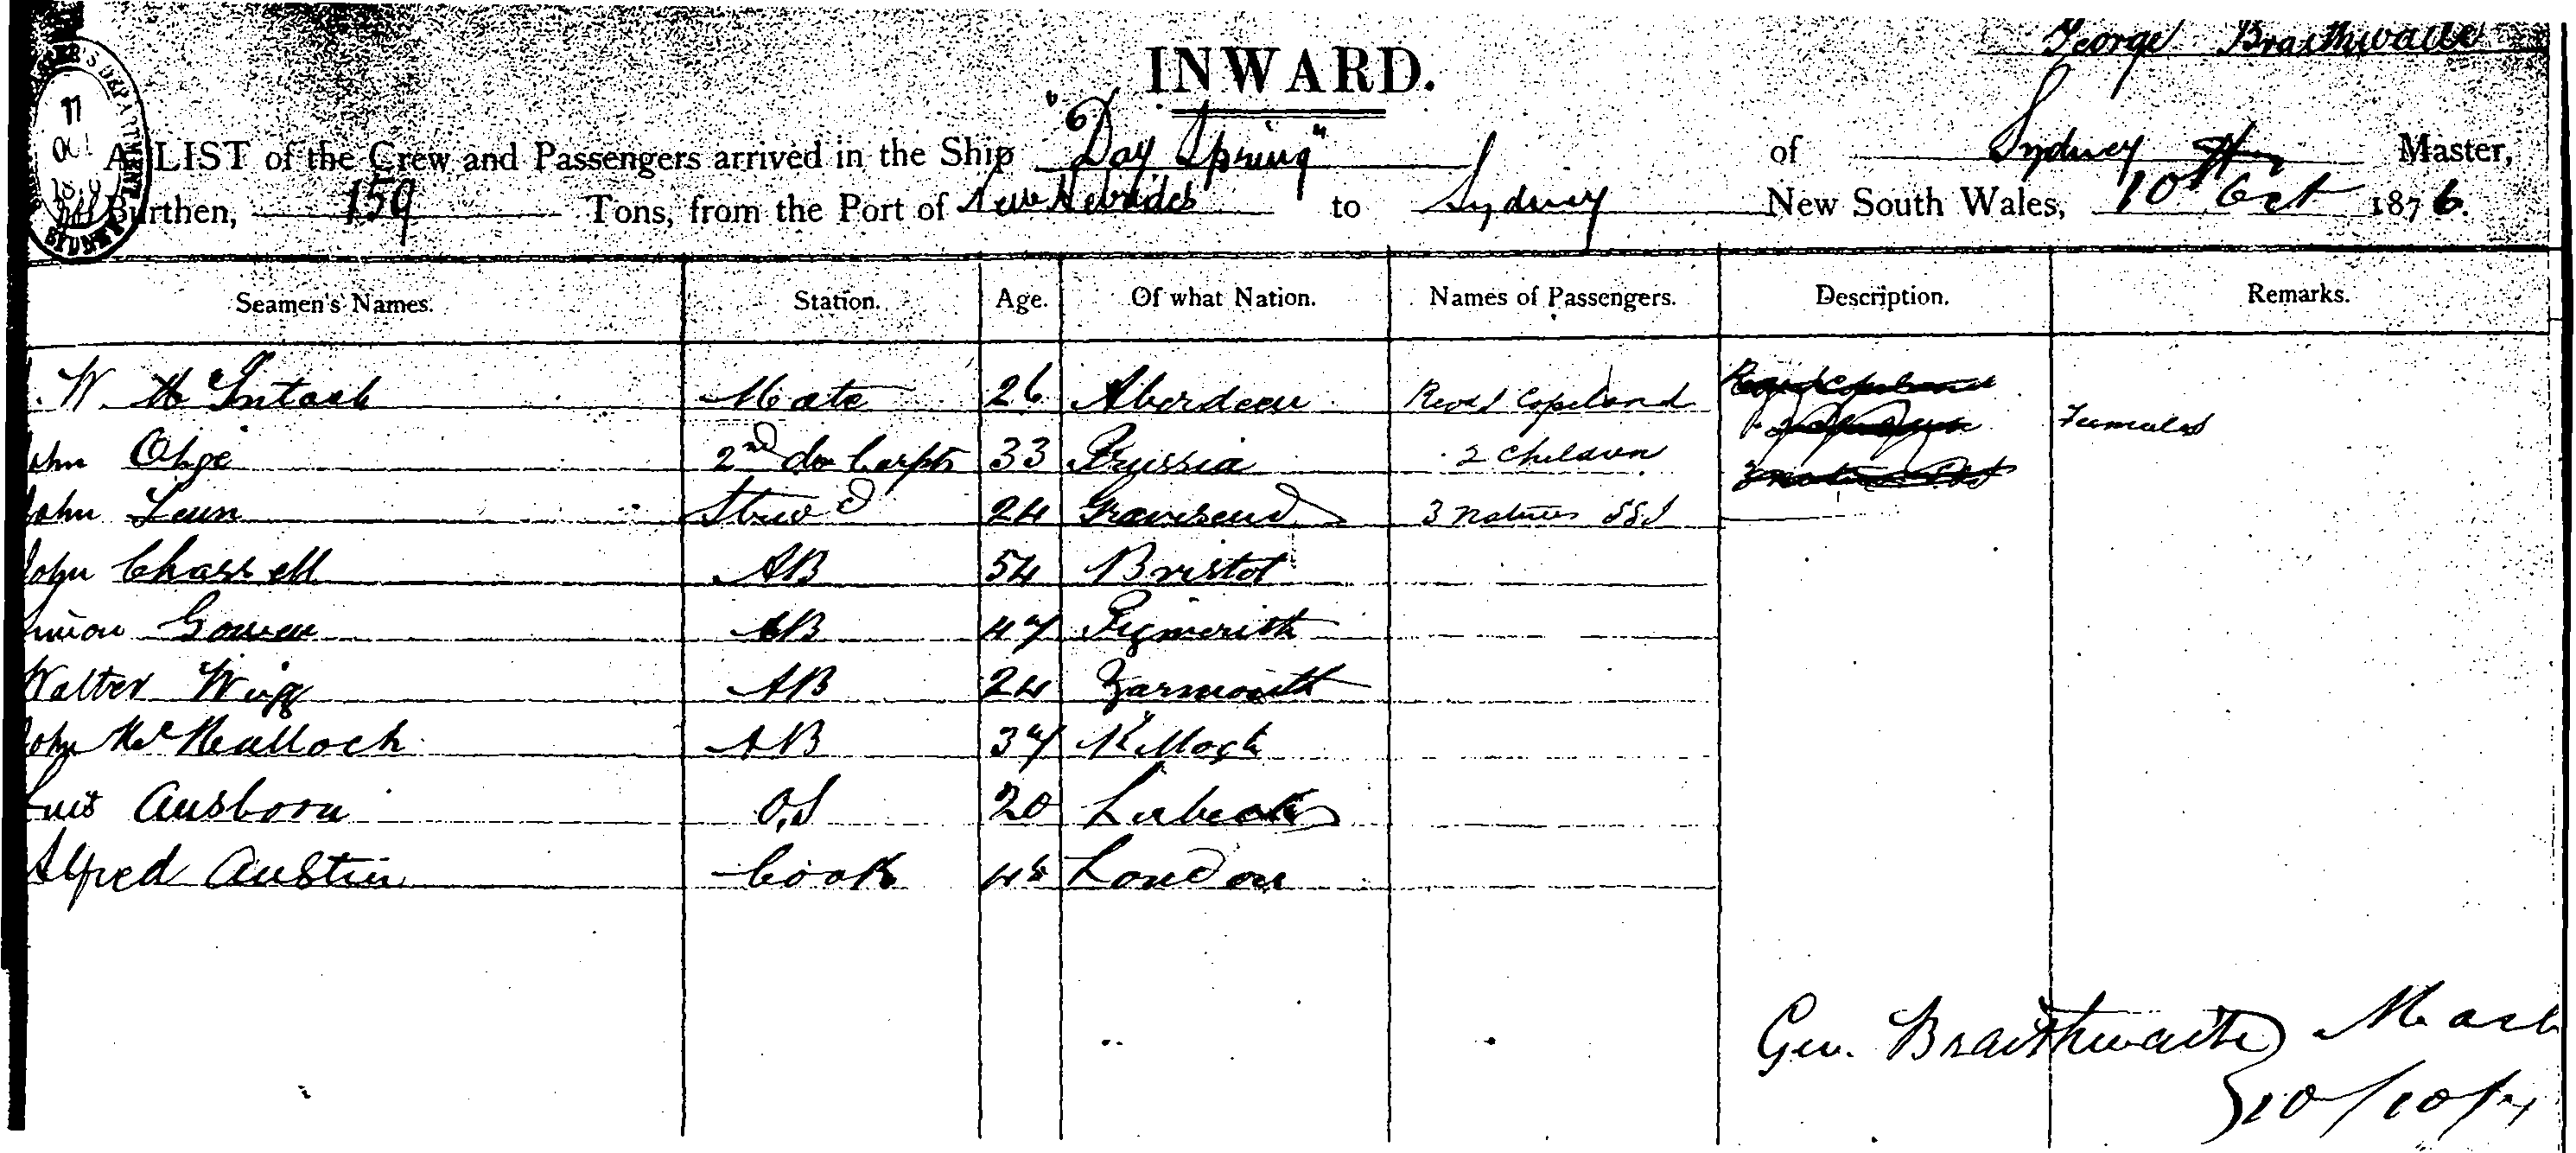 George Braithwaite
INWARD.
"Day Spring"
A LIST of the Crew and Passengers arrived in the Ship "Day Spring" of Sydney Master,
Burthen, 159 Tons, from the Port of New Hebrides to Sydney New South Wales, 10th Oct 1876.
Seamen's Names. Station. Age. Of what Nation. Names of Passengers. Description. Remarks.
W. McIntosh Mate 26 Aberdeen Revd Copeland
John Ohge 2nd do Carptr 33 Prussia 2 Children Females
John Leun Stewd 24 Gravesend 3 natives
John Chassell AB 54 Bristol
Gowen AB 47
Walter Wigg AB 24 Yarmouth
John McKulloch AB 37
Ausborn O.S 20 Lubeck
Alfred Austin Cook London
Geo. Braithwaite Mast
10/10/7